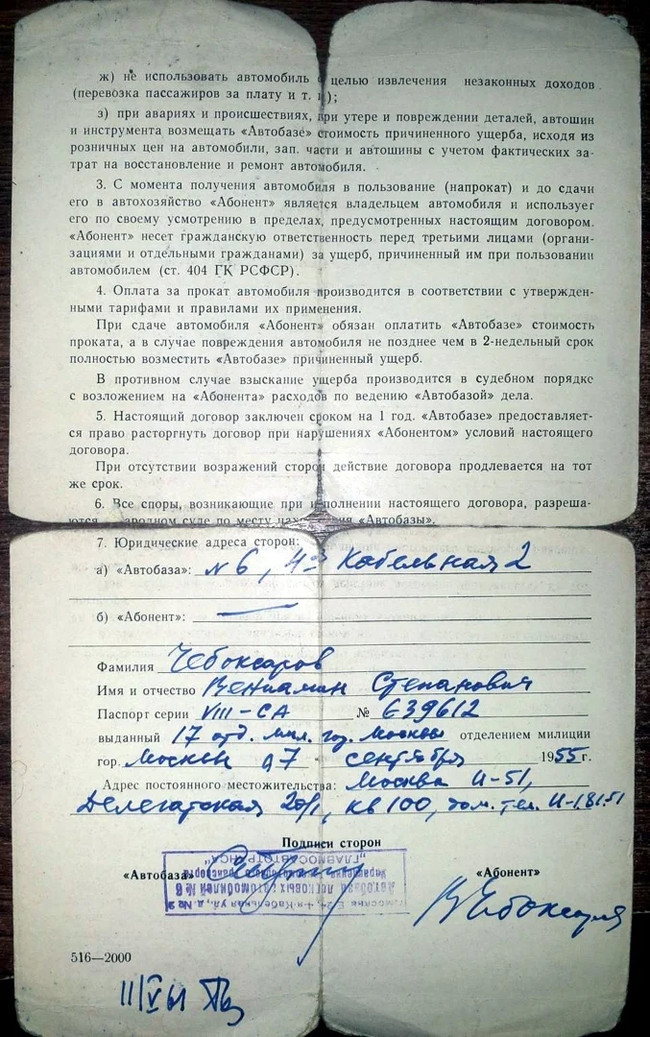 ж) не использовать автомобиль с целью извлечения незаконных доходов
(перевозка пассажиров за плату и т. п.);
з) при авариях и происшествиях, при утере и повреждении деталей, автошин
и инструмента возмещать «Автобазе» стоимость причиненного ущерба, исходя из
розничных цен на автомобили, зап. части и автошины с учетом фактических за-
трат на восстановление и ремонт автомобиля.
3. С момента получения автомобиля в пользование (напрокат) и до сдачи
его в автохозяйство «Абонент» является владельцем автомобиля и использует
его по своему усмотрению в пределах, предусмотренных настоящим договором.
«Абонент» несет гражданскую ответственность перед третьими лицами (органи-
зациями и отдельными гражданами) за ущерб, причиненный им при пользовании
автомобилем (ст. 404 ГК РСФСР).
4. Оплата за прокат автомобиля производится в соответствии с утвержден-
ными тарифами и правилами их применения.
При сдаче автомобиля «Абонент» обязан оплатить «Автобазе» стоимость
проката, а в случае повреждения автомобиля не позднее чем в 2-недельный срок
полностью возместить «Автобазе» причиненный ущерб.
В противном случае взыскание ущерба производится в судебном порядке
с возложением на «Абонента» расходов по ведению «Автобазой» дела.
5. Настоящий договор заключен сроком на 1 год. «Автобазе» предоставляет-
ся право расторгнуть договор при нарушениях «Абонентом» условий настоящего
договора.
При отсутствии возражений сторон действие договора продлевается на тот
же срок.
6. Все споры, возникающие при исполнении настоящего договора, разреша-
ются в народном суде по месту нахождения «Автобазы».
7. Юридические адреса сторон:
а) «Автобаза»: № 6, 4я Кабельная 2
б) «Абонент»:
Фамилия Чебоксаров
Имя и отчество Вениамин Степанович
Паспорт серии VIII-СА № 639612
выданный 17 отд. мил. гор. Москвы отделением милиции
гор. Москвы "7" сентября 1955 г.
Адрес постоянного местожительства: Москва И-51,
Делегатская 20/1, кв 100, дом. тел. И-1,81,51
Подписи сторон
«Автобаза» «Абонент»
"ГЛАВМОСАВТОТРАНСА"
Автобаза легковых автомобилей № 6
г. Москва Е-24, 4-я Кабельная ул., д. № 2
В Чебоксаров
516—2000
11/V 61